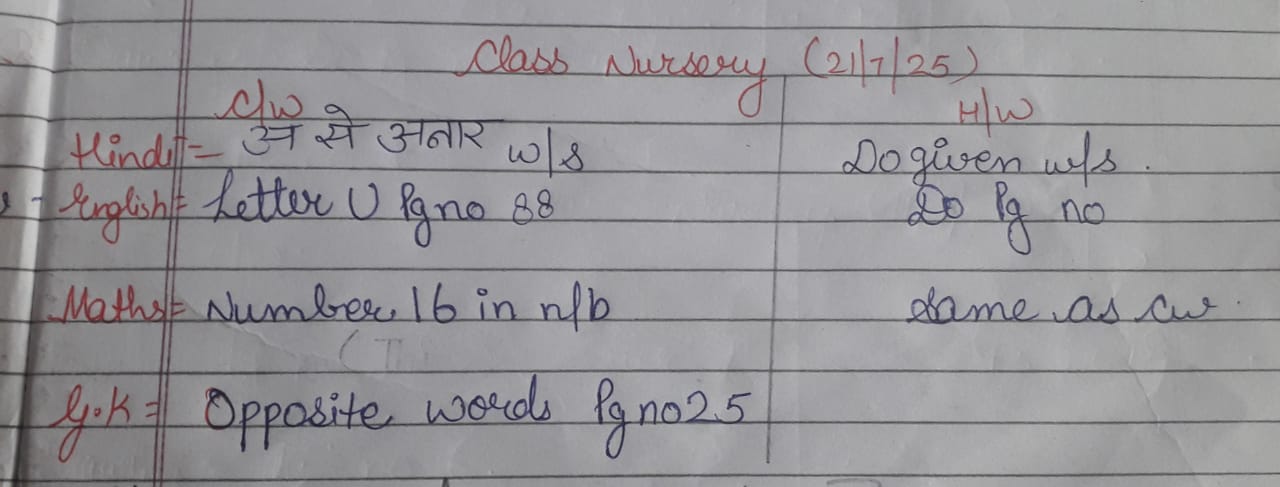 Class Nursery (21/7/25)
C/W H/W
Hindi = अ से अनार w/s Do given w/s.
English = Letter U Pg no 88 Do Pg no
Maths = Number 16 in n/b Same as cw.
G.K = Opposite words Pg no 25